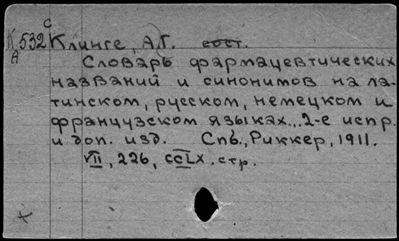 С
К 532 Клинге, А.Г. сост.
А
Словарь фармацевтических
названий и синонимов на ла-
тинском, русском, немецком и
французском языках... 2-е испр.
и доп. изд. Спб., Риккер, 1911.
VII, 226, CCLX. стр.